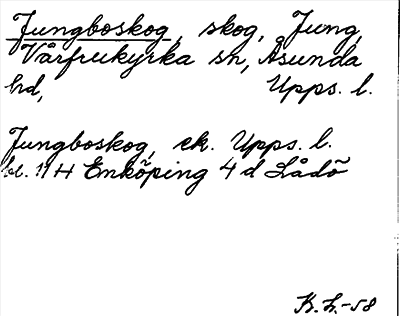 Jungboskog, skog, Jung,
Vårfrukyrka sn, Åsunda
hd, Upps. l.
Jungboskog, ek. Upps. l.
bl. 11 H Enköping 4 d Lådö
K. L. -58